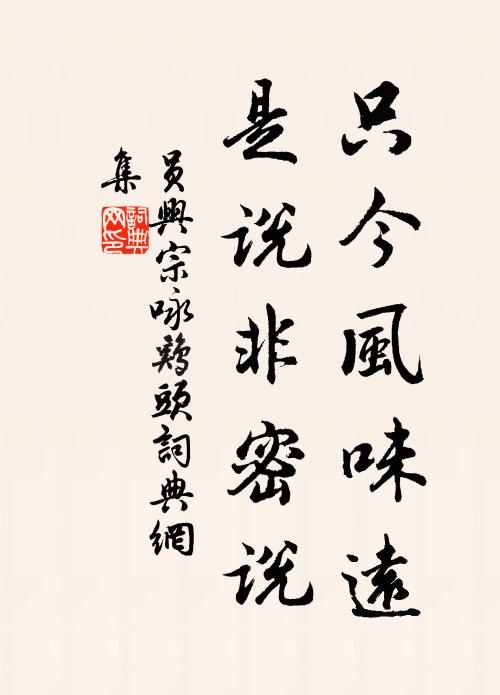 只今風味遠
是说非密说
員興宗咏鷄頭詞典網
集
詞典网印